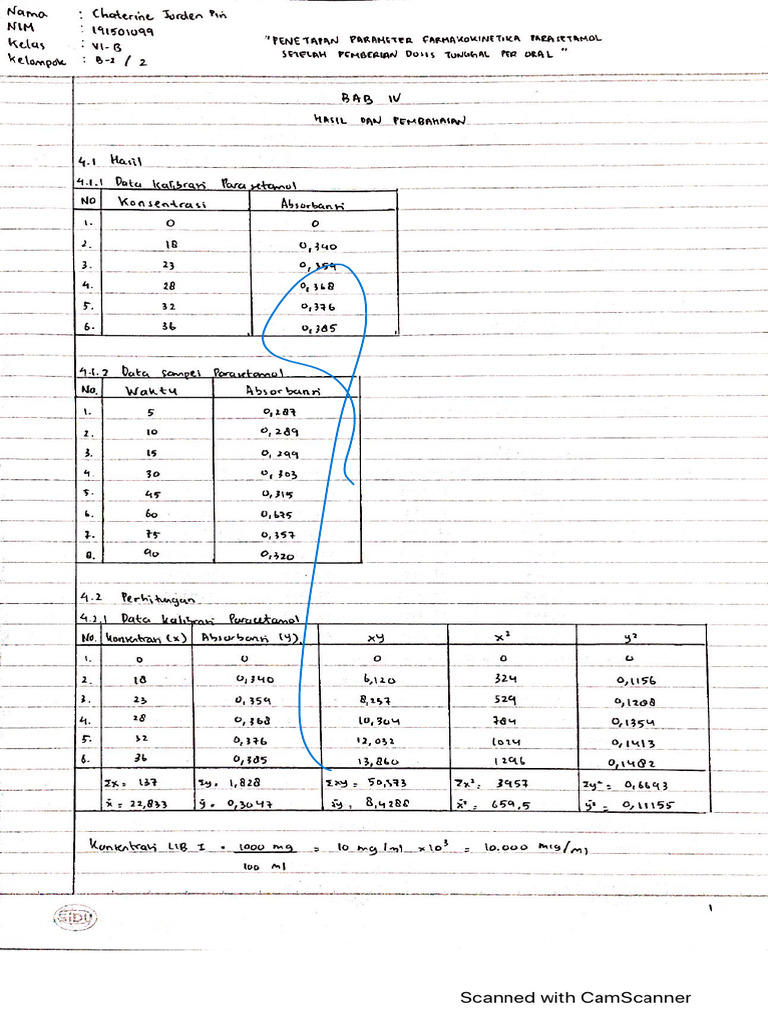 Nama : Chaterine Jurden Pin
NIM : 191501099
Kelas : VI-B
Kelompok : B-2 / 2
"PENETAPAN PARAMETER FARMAKOKINETIKA PARASETAMOL
SETELAH PEMBERIAN DOSIS TUNGGAL PER ORAL"
BAB IV
HASIL DAN PEMBAHASAN
4.1 Hasil
4.1.1 Data kalibrasi Parasetamol
NO Konsentrasi Absorbansi
1. 0 0
2. 18 0,340
3. 23 0,359
4. 28 0,368
5. 32 0,376
6. 36 0,385
4.1.2 Data sampel Parasetamol
No. Waktu Absorbansi
1. 5 0,287
2. 10 0,289
3. 15 0,299
4. 30 0,303
5. 45 0,315
6. 60 0,675
7. 75 0,357
8. 90 0,320
4.2 Perhitungan
4.2.1 Data kalibrasi Paracetamol
No. Konsentrasi (x) Absorbansi (y) xy x² y²
1. 0 0 0 0 0
2. 18 0,340 6,120 324 0,1156
3. 23 0,359 8,257 529 0,1288
4. 28 0,368 10,304 784 0,1354
5. 32 0,376 12,032 1024 0,1413
6. 36 0,385 13,860 1296 0,1482
Σx = 137 Σy = 1,828 Σxy = 50,573 Σx² = 3957 Σy² = 0,6693
x̄ = 22,833 ȳ = 0,3047 x̄ȳ = 8,4288 x̄² = 659,5 ȳ² = 0,11155
Konsentrasi LIB I = 1000 mg / 100 ml = 10 mg/ml × 10³ = 10.000 mcg/ml
1
SiDU
Scanned with CamScanner